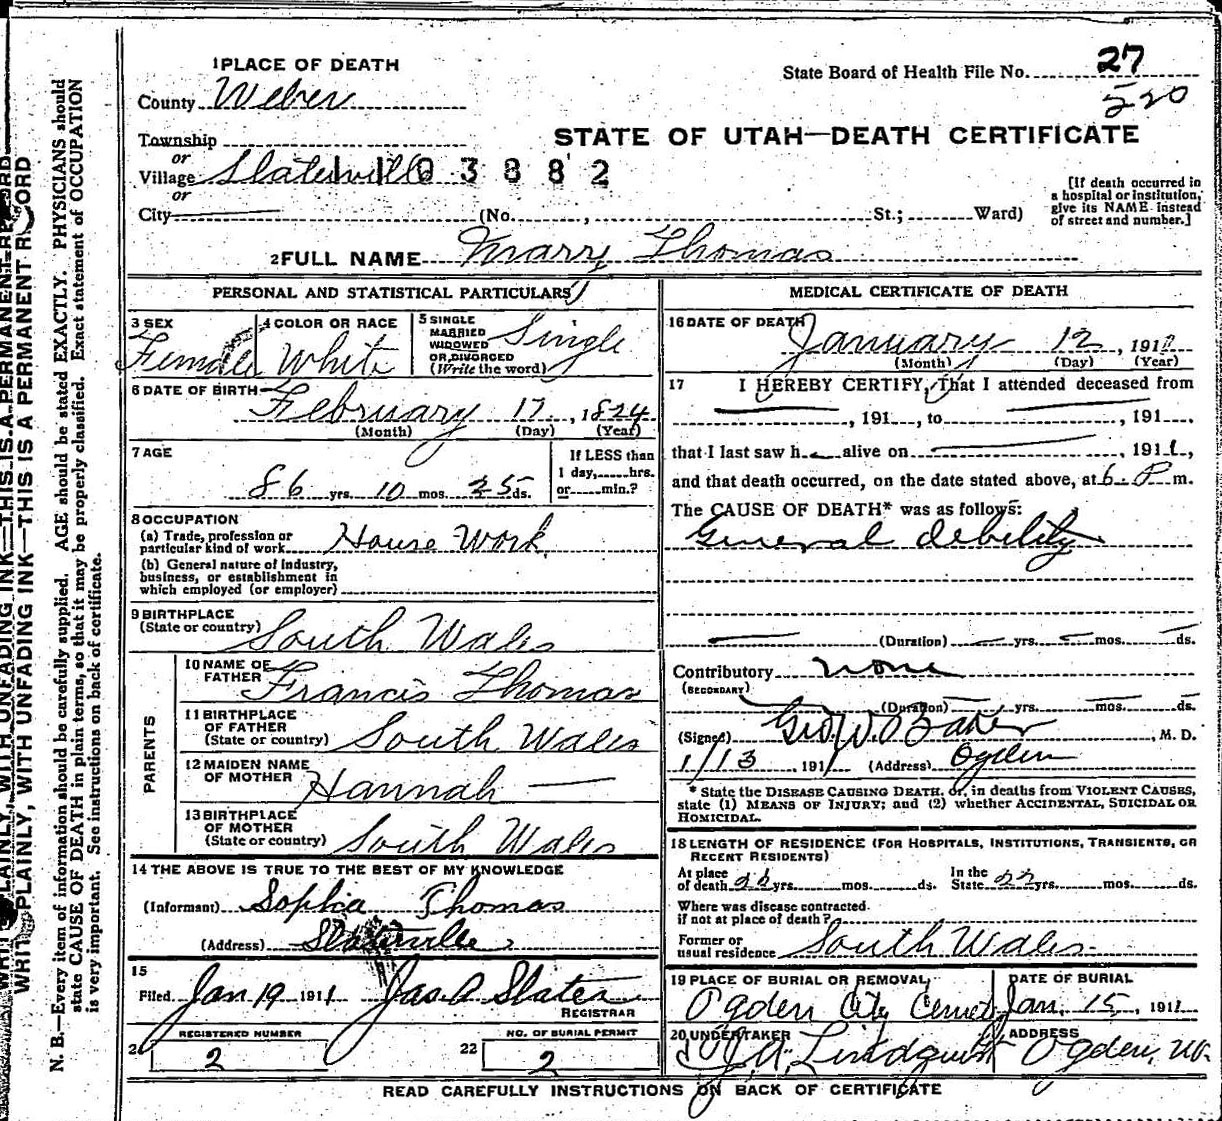 1 PLACE OF DEATH
State Board of Health File No. 27
County Weber
520
STATE OF UTAH—DEATH CERTIFICATE
Township
or
Village Slaterville 03882
or
City (No. , St.; Ward)
[If death occurred in a hospital or institution, give its NAME instead of street and number.]
2 FULL NAME Mary Thomas
PERSONAL AND STATISTICAL PARTICULARS
3 SEX Female
4 COLOR OR RACE White
5 SINGLE MARRIED WIDOWED OR DIVORCED (Write the word) Single
6 DATE OF BIRTH February 17, 1824
(Month) (Day) (Year)
7 AGE
86 yrs. 10 mos. 25 ds.
If LESS than 1 day, hrs. or min.?
8 OCCUPATION
(a) Trade, profession or particular kind of work House Work
(b) General nature of industry, business, or establishment in which employed (or employer)
9 BIRTHPLACE
(State or country) South Wales
PARENTS
10 NAME OF FATHER Francis Thomas
11 BIRTHPLACE OF FATHER (State or country) South Wales
12 MAIDEN NAME OF MOTHER Hannah —
13 BIRTHPLACE OF MOTHER (State or country) South Wales
14 THE ABOVE IS TRUE TO THE BEST OF MY KNOWLEDGE
(Informant) Sophia Thomas
(Address) Slaterville
15
Filed Jan 19 1911 Jas A Slater
REGISTRAR
REGISTERED NUMBER
2
22 NO. OF BURIAL PERMIT
2
MEDICAL CERTIFICATE OF DEATH
16 DATE OF DEATH
January 12, 1911
(Month) (Day) (Year)
17 I HEREBY CERTIFY, That I attended deceased from
, 191 , to , 191
that I last saw h alive on , 1911,
and that death occurred, on the date stated above, at 6 P m.
The CAUSE OF DEATH* was as follows:
General debility
(Duration) yrs. mos. ds.
Contributory none
(SECONDARY)
(Duration) yrs. mos. ds.
(Signed) Geo. W. Baker, M. D.
1/13, 1911 (Address) Ogden
* State the DISEASE CAUSING DEATH, or, in deaths from VIOLENT CAUSES, state (1) MEANS OF INJURY; and (2) whether ACCIDENTAL, SUICIDAL OR HOMICIDAL.
18 LENGTH OF RESIDENCE (FOR HOSPITALS, INSTITUTIONS, TRANSIENTS, OR RECENT RESIDENTS)
At place of death yrs. mos. ds. In the State 22 yrs. mos. ds.
Where was disease contracted if not at place of death?
Former or usual residence South Wales
19 PLACE OF BURIAL OR REMOVAL
Ogden City Cemet
DATE OF BURIAL
Jan. 15, 1911
20 UNDERTAKER
J. A. Lindquist
ADDRESS
Ogden, Ut.
READ CAREFULLY INSTRUCTIONS ON BACK OF CERTIFICATE
WRITE PLAINLY, WITH UNFADING INK—THIS IS A PERMANENT RECORD
N. B.—Every item of information should be carefully supplied. AGE should be stated EXACTLY. PHYSICIANS should
state CAUSE OF DEATH in plain terms, so that it may be properly classified. Exact statement of OCCUPATION
is very important. See instructions on back of certificate.